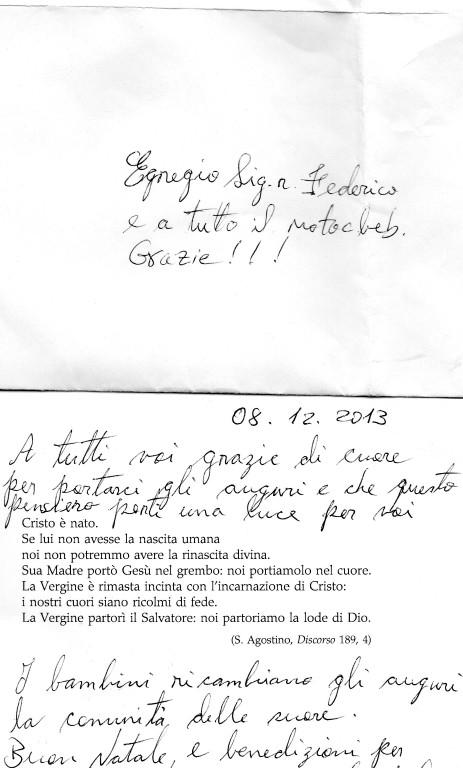 Egregio Sig.r. Federico
e a tutto il motocleb.
Grazie!!!
08. 12. 2013
A tutti voi grazie di cuore
per portarci gli auguri e che questo
pensiero porti una luce per voi
Cristo è nato.
Se lui non avesse la nascita umana
noi non potremmo avere la rinascita divina.
Sua Madre portò Gesù nel grembo: noi portiamolo nel cuore.
La Vergine è rimasta incinta con l'incarnazione di Cristo:
i nostri cuori siano ricolmi di fede.
La Vergine partorì il Salvatore: noi partoriamo la lode di Dio.
(S. Agostino, Discorso 189, 4)
I bambini ricambiano gli auguri
la comunità delle suore.
Buon Natale, e benedizioni per